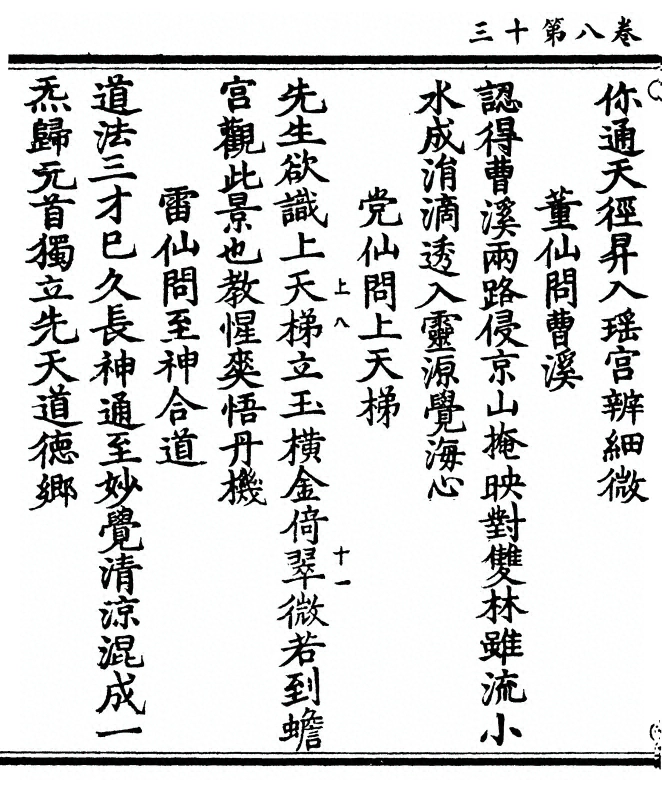 三十第八卷
你通天徑昇入瑶宫辨細微
董仙問曹溪
認得曹溪兩路侵京山掩映對雙林雖流小
水成消滴透入靈源覺海心
党仙問上天梯
先生欲識上天梯立玉橫金倚翠微若到蟾
上八
十一
宮觀此景也教惺奭悟丹機
雷仙問至神合道
道法三才巳久長神通至妙覺清涼混成一
炁歸元首獨立先天道德鄉